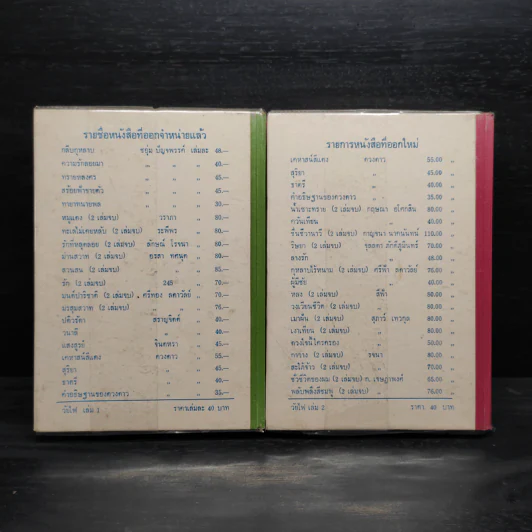 รายชื่อหนังสือที่ออกจำหน่ายแล้ว
กลีบกุหลาบ ชอุ่ม ปัญจพรรค์ เล่มละ 40.—
ความรักลอยมา " " 40.—
ทรายหลงดาว " " 45.—
สร้อยฟ้าขายตัว " " 45.—
ทายาทนายพล " " 30.—
หมูแดง (2 เล่มจบ) วราภา " 80.—
ทะเลไม่เคยหลับ (2 เล่มจบ) ระพีพร " 80.—
รักที่หลุดลอย (2 เล่มจบ) ลักษณ์ โรจนา " 60.—
ม่านสวาท (2 เล่มจบ) " 80.—
ลวนลม (2 เล่มจบ) " " 80.—
รัก (2 เล่มจบ) " 70.—
มนต์ปาริชาติ (2 เล่มจบ) ศรีทอง ลดาวัลย์ " 70.—
มรสุมสวาท (2 เล่มจบ) " " 76.—
" 40.—
วนาลี " " 40.—
แสงสูรย์ จินตหรา " 45.—
เคหาสน์สีแดง ดวงดาว " 55.—
สุริยา " " 45.—
ธาตรี " " 40.—
คำอธิษฐานของดวงดาว " " 35.—
วัยไฟ เล่ม 1 ราคาเล่มละ 40 บาท
รายการหนังสือที่ออกใหม่
เคหาสน์สีแดง ดวงดาว 55.00 "
สุริยา " 45.00 "
ธาตรี " 40.00 "
คำอธิษฐานของดวงดาว " 35.00 "
น้ำเซาะทราย (2 เล่มจบ) กฤษณา อโศกสิน 80.00 "
ตวันเทียน " 40.00 "
ชั่นชีวานารี (2 เล่มจบ) กาญจนา นาคนันทน์ 110.00 "
ริษยา (2 เล่มจบ) จุลลดา ภักดีภูมินทร์ 70.00 "
ลางรัก " 48.00 "
กุหลาบไร้หนาม (2 เล่มจบ) ศรีฟ้า ลดาวัลย์ 76.00 "
ผู้มีชัย " 40.00 "
หลง (2 เล่มจบ) สีฟ้า 60.00 "
วงเวียนชีวิต (2 เล่มจบ) " 68.00 "
เมาฝัน (2 เล่มจบ) สุภาว์ เทวกุล 60.00 "
เงาเทียน (2 เล่มจบ) " 80.00 "
ดวงใจนี้ใครครอง " 50.00 "
กาว่าง (2 เล่มจบ) รจนา 80.00 "
สะใภ้จ้าว (2 เล่มจบ) " 70.00 "
ชั่วชีวิตของผม (2 เล่มจบ) ก. เชษฎาพงศ์ 65.00 "
พลับพลึงสีชมพู (2 เล่มจบ) " 76.00 "
วัยไฟ เล่ม 2 ราคา 40 บาท